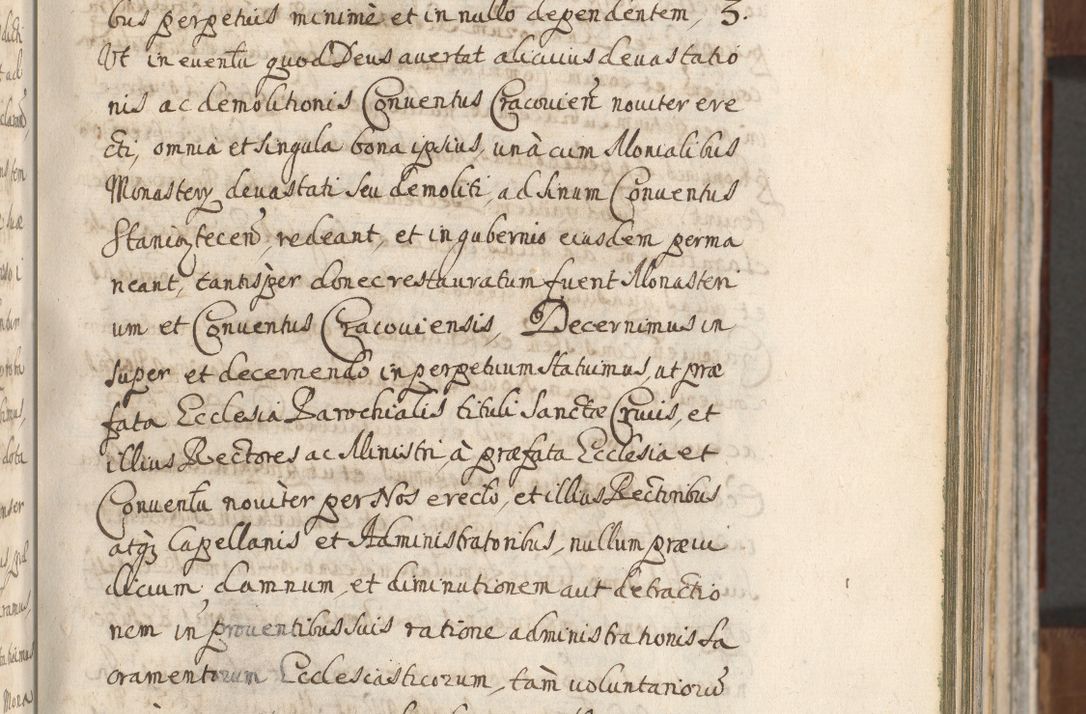 bus perpetuis minimè et in nullo dependentem, 3.
Ut in eventu quod Deus avertat alicuius devastatio
nis ac demolitionis Conventus Cracovien̄ noviter ere
cti, omnia et singula bona ipsius, unà cum Monialibus
Monastery devastati seu demoliti, ad sinum Conventus
Staniąteceñ, redeant, et in gubernio eiusdem perma
neant, tantisper donec restauratum fuerit Monasteri
um et Conventus Cracoviensis, Decernimus in
super et decernendo in perpetuum statuimus, ut præ
fata Ecclesia Parochialis tituli Sanctæ Crucis, et
illius Rectores ac Ministri, à præfata Ecclesia et
Conventu noviter per Nos erecto, et illius Rectoribus
atqз Capellanis et Administratoribus, nullum præiu
dicium damnum, et diminutionem aut detractio
nem in proventibus suis ratione administrationis Sa
cramentorum Ecclesiasticorum, tam voluntarioru̅